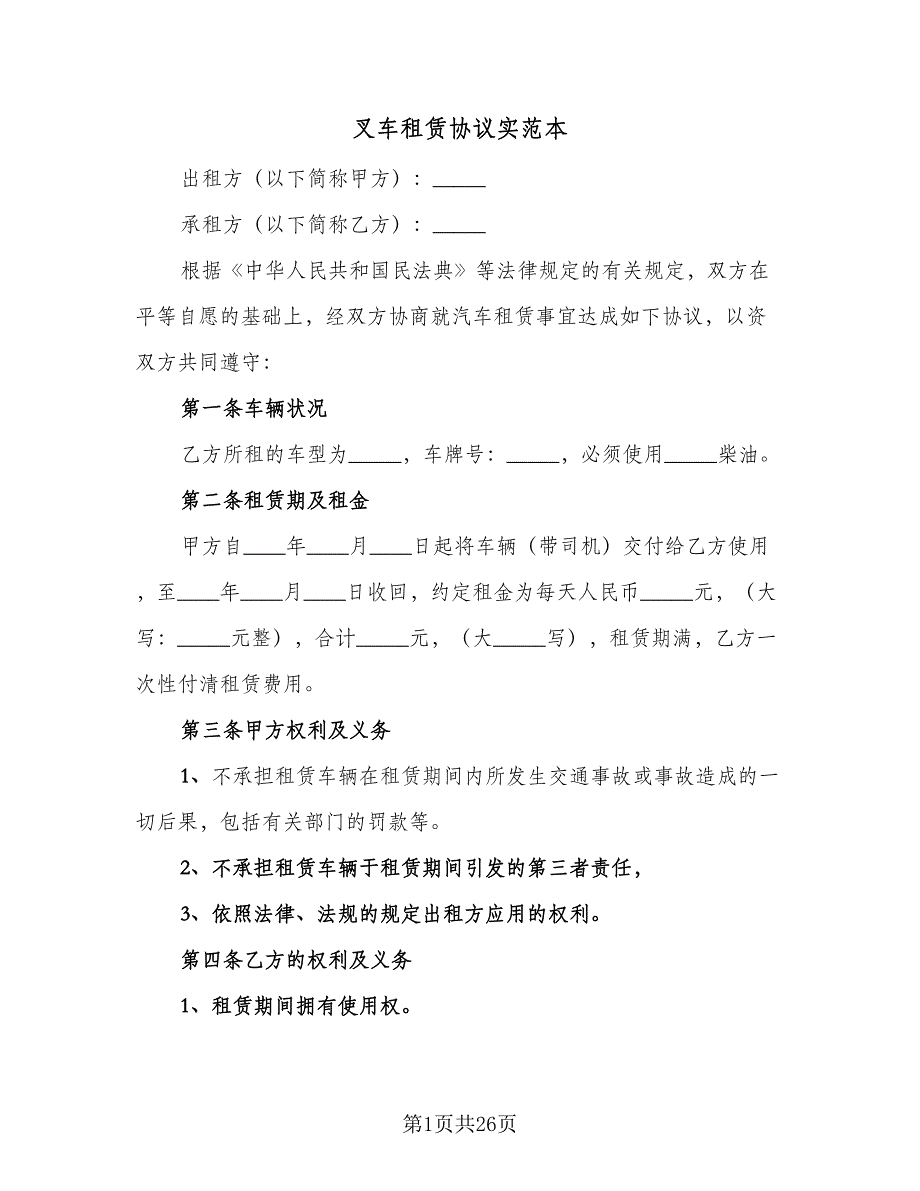 叉车租赁协议实范本
出租方（以下简称甲方）：_____
承租方（以下简称乙方）：_____
根据《中华人民共和国民法典》等法律规定的有关规定，双方在
平等自愿的基础上，经双方协商就汽车租赁事宜达成如下协议，以资
双方共同遵守：
第一条车辆状况
乙方所租的车型为_____，车牌号：_____，必须使用_____柴油。
第二条租赁期及租金
甲方自____年____月____日起将车辆（带司机）交付给乙方使用
，至____年____月____日收回，约定租金为每天人民币_____元，（大
写：_____元整），合计_____元，（大_____写），租赁期满，乙方一
次性付清租赁费用。
第三条甲方权利及义务
1、不承担租赁车辆在租赁期间内所发生交通事故或事故造成的一
切后果，包括有关部门的罚款等。
2、不承担租赁车辆于租赁期间引发的第三者责任，
3、依照法律、法规的规定出租方应用的权利。
第四条乙方的权利及义务
1、租赁期间拥有使用权。
第1页共26页